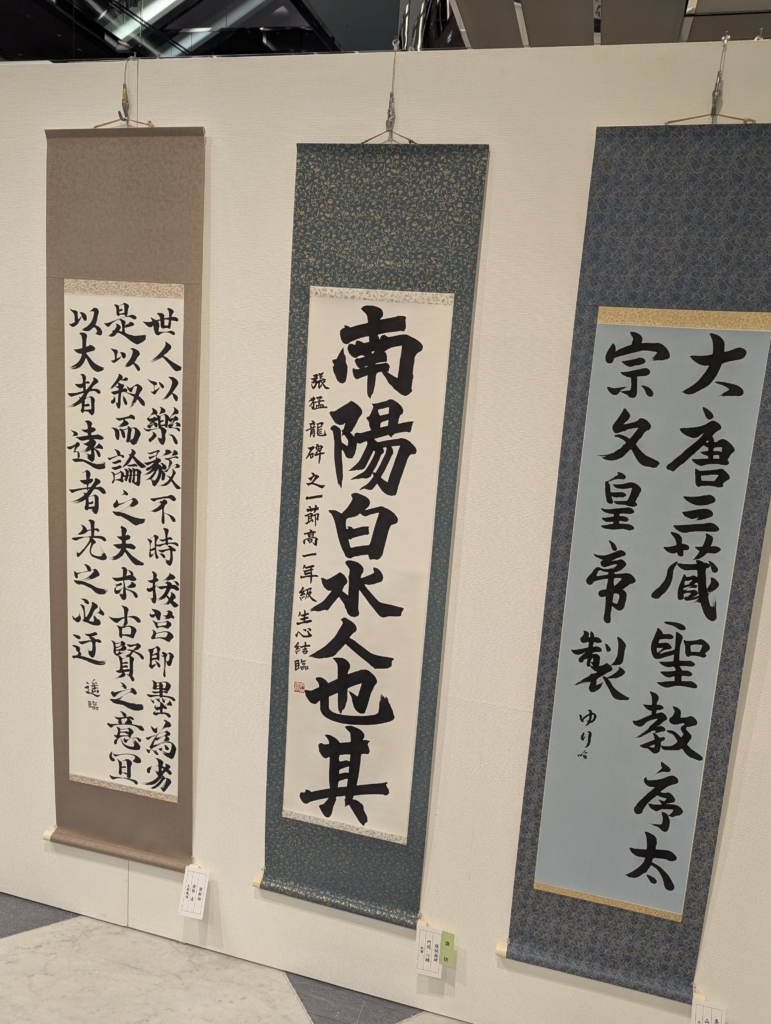 大唐三蔵聖教序太
宗文皇帝製
ゆり
南陽白水人也其
張猛龍碑之一節高一年級 生心結臨
世人以樂毅不時拔莒即墨為劣
是以叙而論之夫求古賢之意宜
以大者遠者先之必迂
遥臨